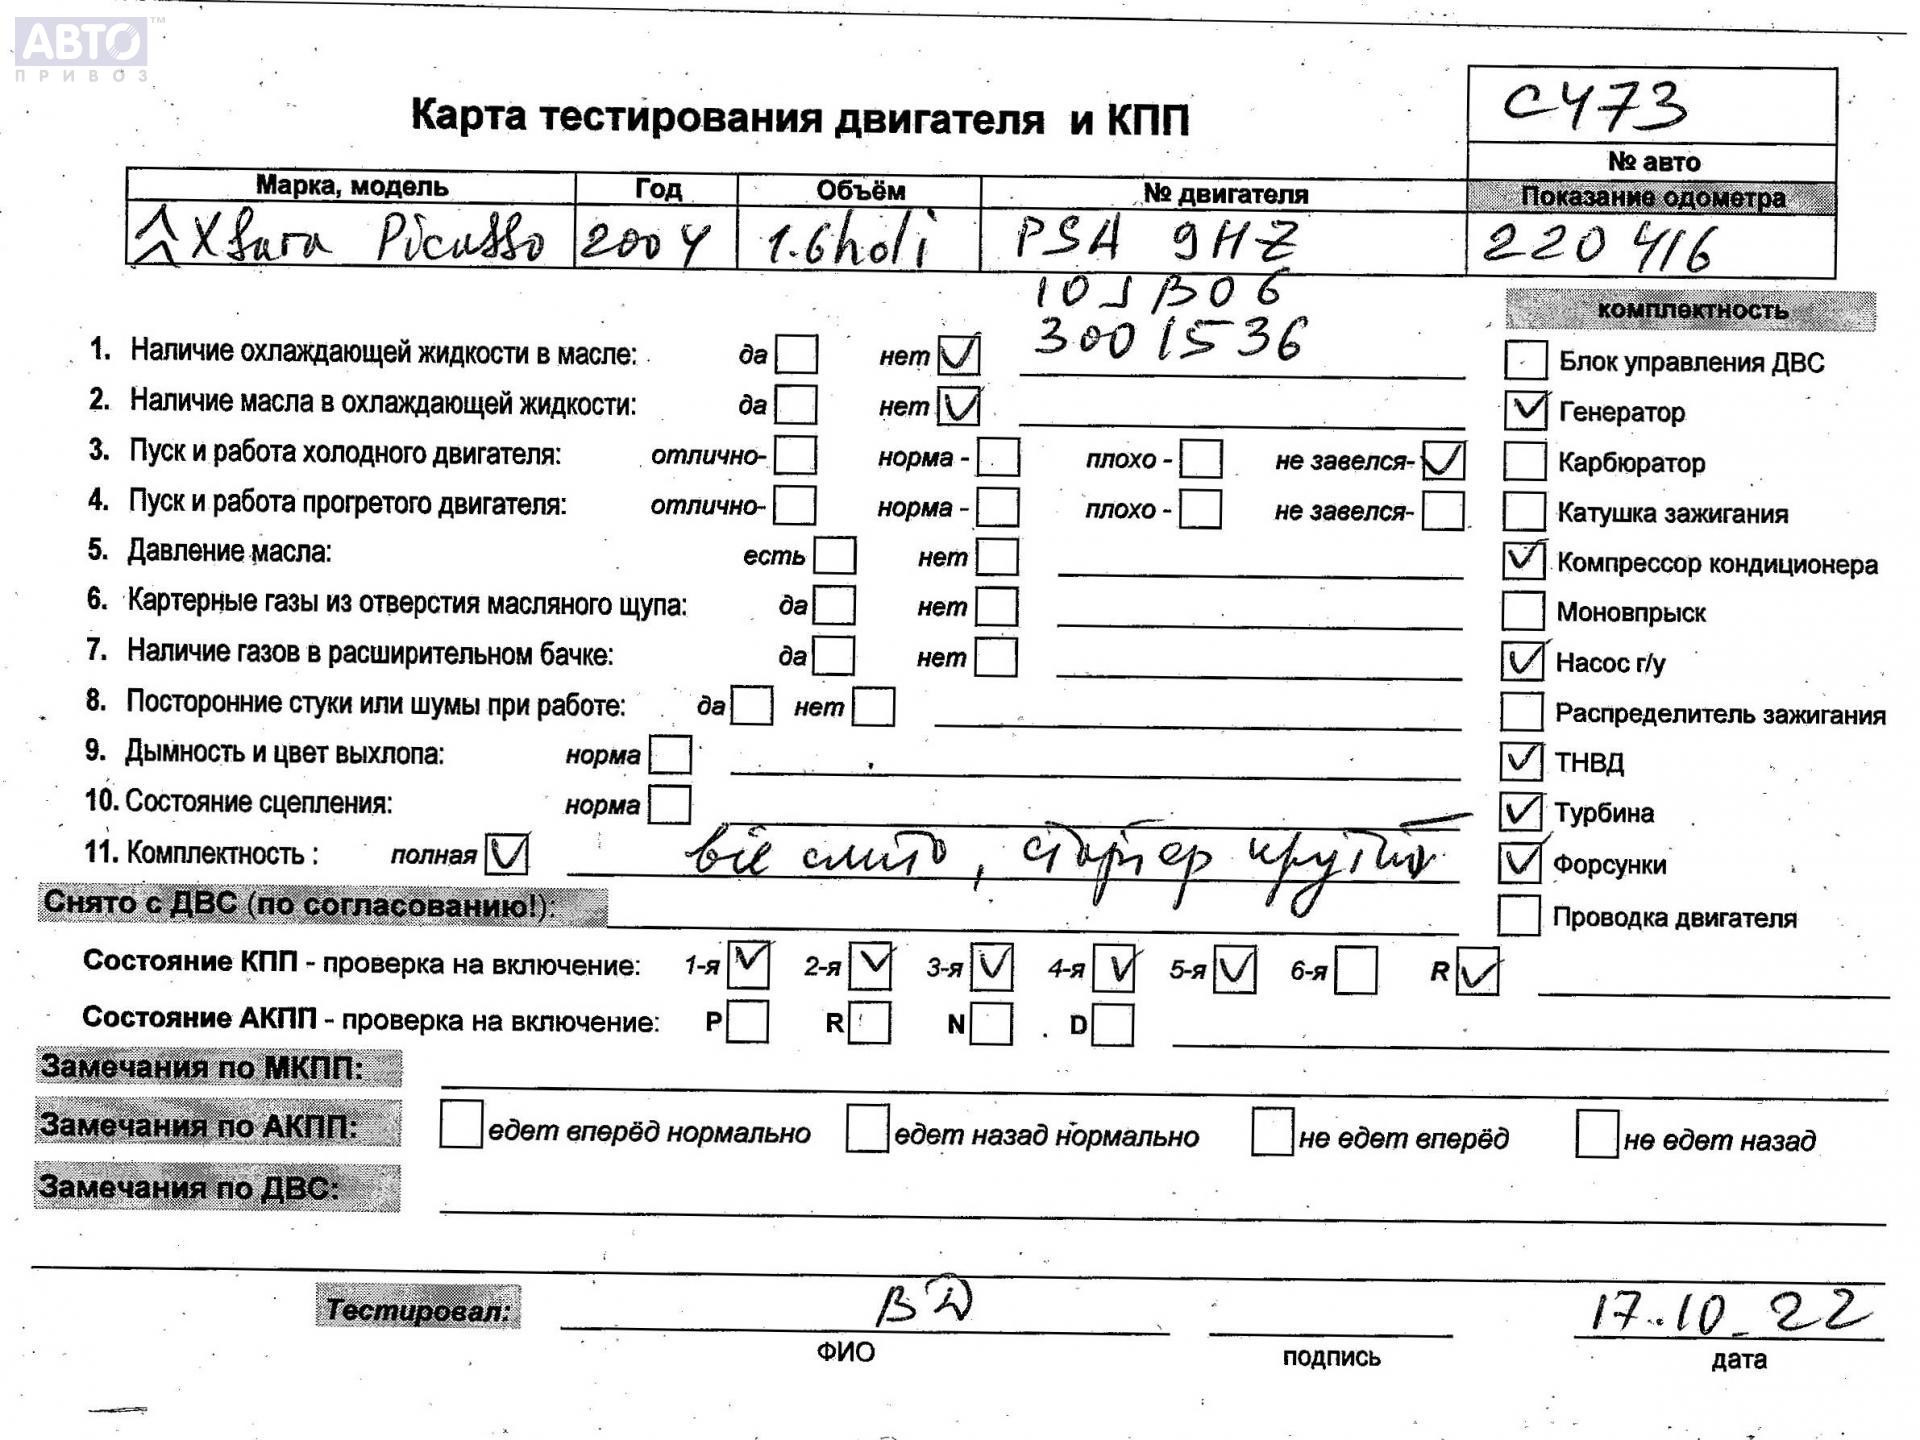 АВТО™
ПРИВОЗ
С473
Карта тестирования двигателя и КПП
№ авто
Марка, модель Год Объём № двигателя Показание одометра
Xsara Picasso 2004 1.6hdi PSA 9HZ 220416
10JB06
3001536
комплектность
1. Наличие охлаждающей жидкости в масле: да нет
Блок управления ДВС
2. Наличие масла в охлаждающей жидкости: да нет
Генератор
3. Пуск и работа холодного двигателя: отлично- норма - плохо - не завелся-
Карбюратор
4. Пуск и работа прогретого двигателя: отлично- норма - плохо - не завелся-
Катушка зажигания
5. Давление масла: есть нет
Компрессор кондиционера
6. Картерные газы из отверстия масляного щупа: да нет
Моновпрыск
7. Наличие газов в расширительном бачке: да нет
Насос г/у
8. Посторонние стуки или шумы при работе: да нет
Распределитель зажигания
9. Дымность и цвет выхлопа: норма
ТНВД
10. Состояние сцепления: норма
Турбина
11. Комплектность : полная все слито, стартер крутит
Форсунки
Снято с ДВС (по согласованию!):
Проводка двигателя
Состояние КПП - проверка на включение: 1-я 2-я 3-я 4-я 5-я 6-я R
Состояние АКПП - проверка на включение: P R N D
Замечания по МКПП:
Замечания по АКПП: едет вперёд нормально едет назад нормально не едет вперёд не едет назад
Замечания по ДВС:
Тестировал: 17.10.22
ФИО подпись дата